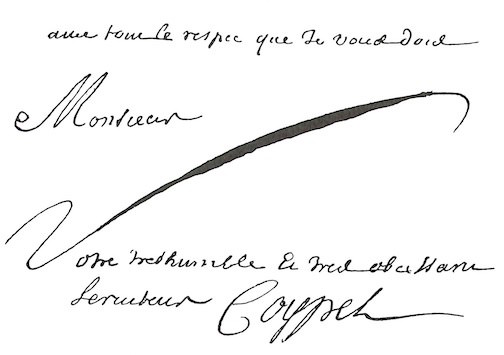 avec tout le respec que Je vous dois
Monsieur
Votre tres humble Et tres obeissant
Serviteur Coypel